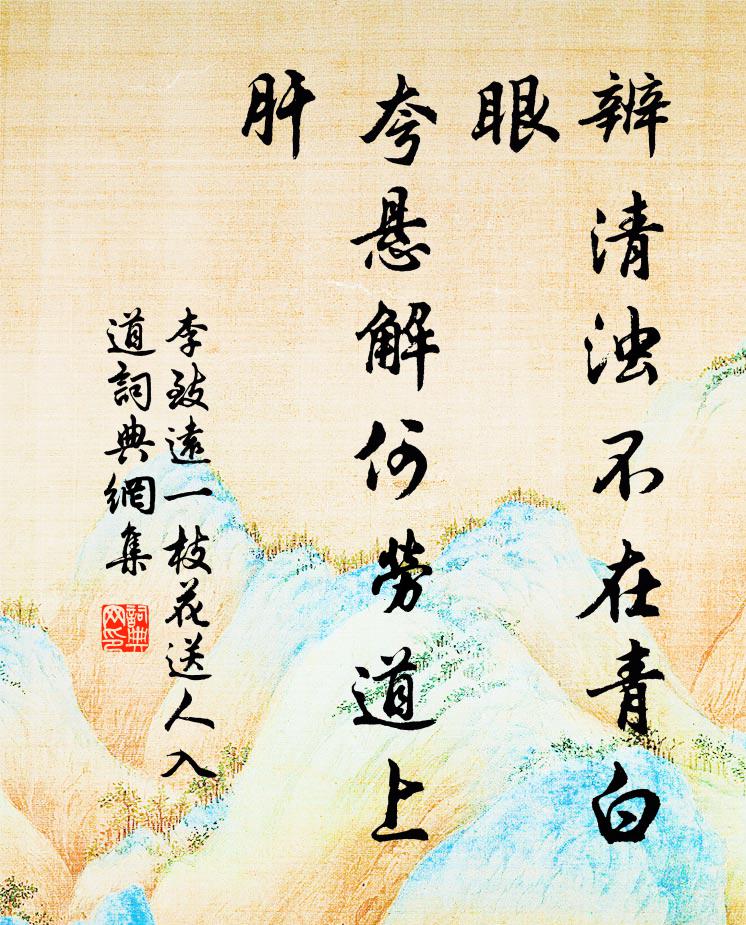 辨清浊不在青白
眼
夸悬解何劳道上
肝
李致遠一枝花送人入
道詞典網集
詞典
网印